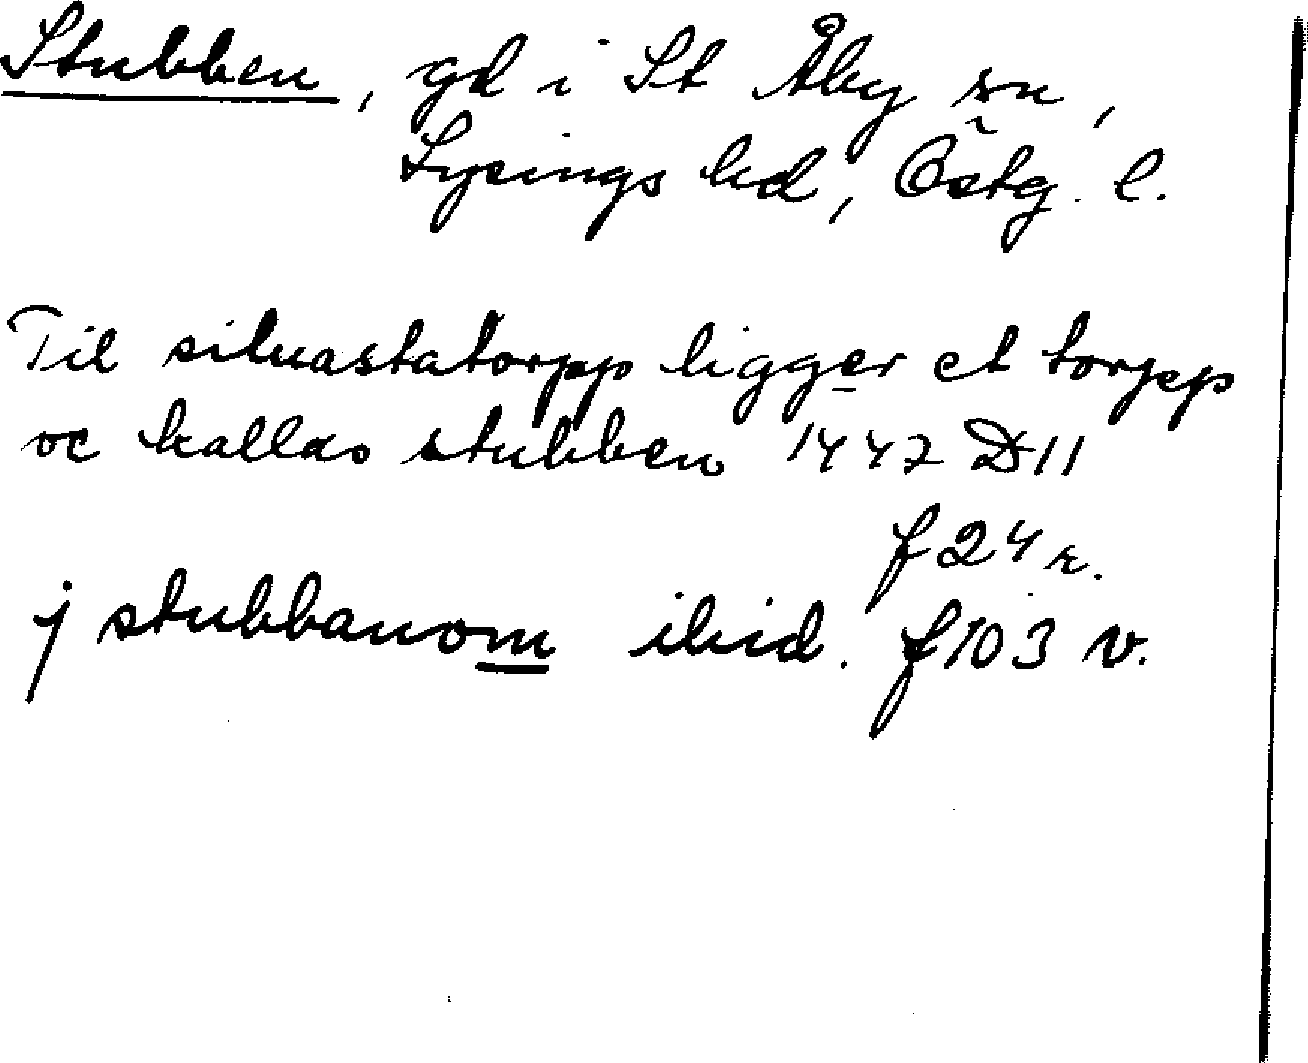 Stubben, gd i St Åby sn,
Lysings hd, Östg. l.
Til siluastatorpp ligger et torpp
oc kallas stubben 1447 D11
f 24 r.
j stubbanom ibid. f 103 v.